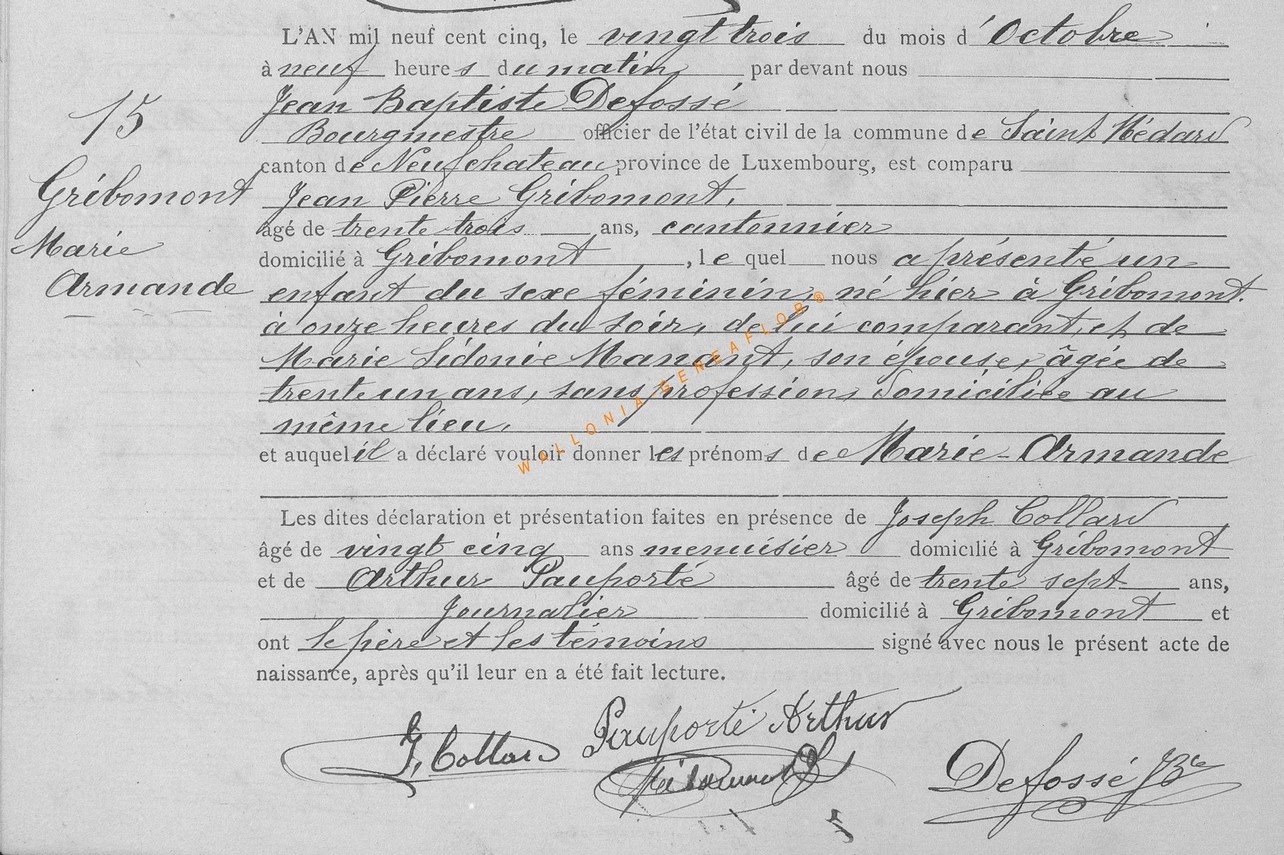 L'AN mil neuf cent cinq, le vingt trois du mois d'Octobre
à neuf heures du matin, par devant nous
Jean Baptiste Defossé
Bourgmestre officier de l'état civil de la commune de Saint Médard
canton de Neufchateau province de Luxembourg, est comparu
Jean Pierre Gribomont,
âgé de trente trois ans, cantonnier
domicilié à Gribomont, le quel nous a présenté un
enfant du sexe féminin, né hier à Gribomont.
à onze heures du soir, de lui comparant, et de
Marie Sidonie Manant, son épouse, âgée de
trente un ans, sans profession, domiciliée au
même lieu,
et auquel il a déclaré vouloir donner les prénoms de Marie-Armande
Les dites déclaration et présentation faites en présence de Joseph Collard
âgé de vingt cinq ans menuisier domicilié à Gribomont
et de Arthur Pauporté âgé de trente sept ans,
Journalier domicilié à Gribomont et
ont le père et les témoins signé avec nous le présent acte de
naissance, après qu'il leur en a été fait lecture.
15
Gribomont
Marie
Armande
J, Collard
Pauporté Arthur
Gribomont
Defossé JBte
WALLONIA GENEAFLOR®